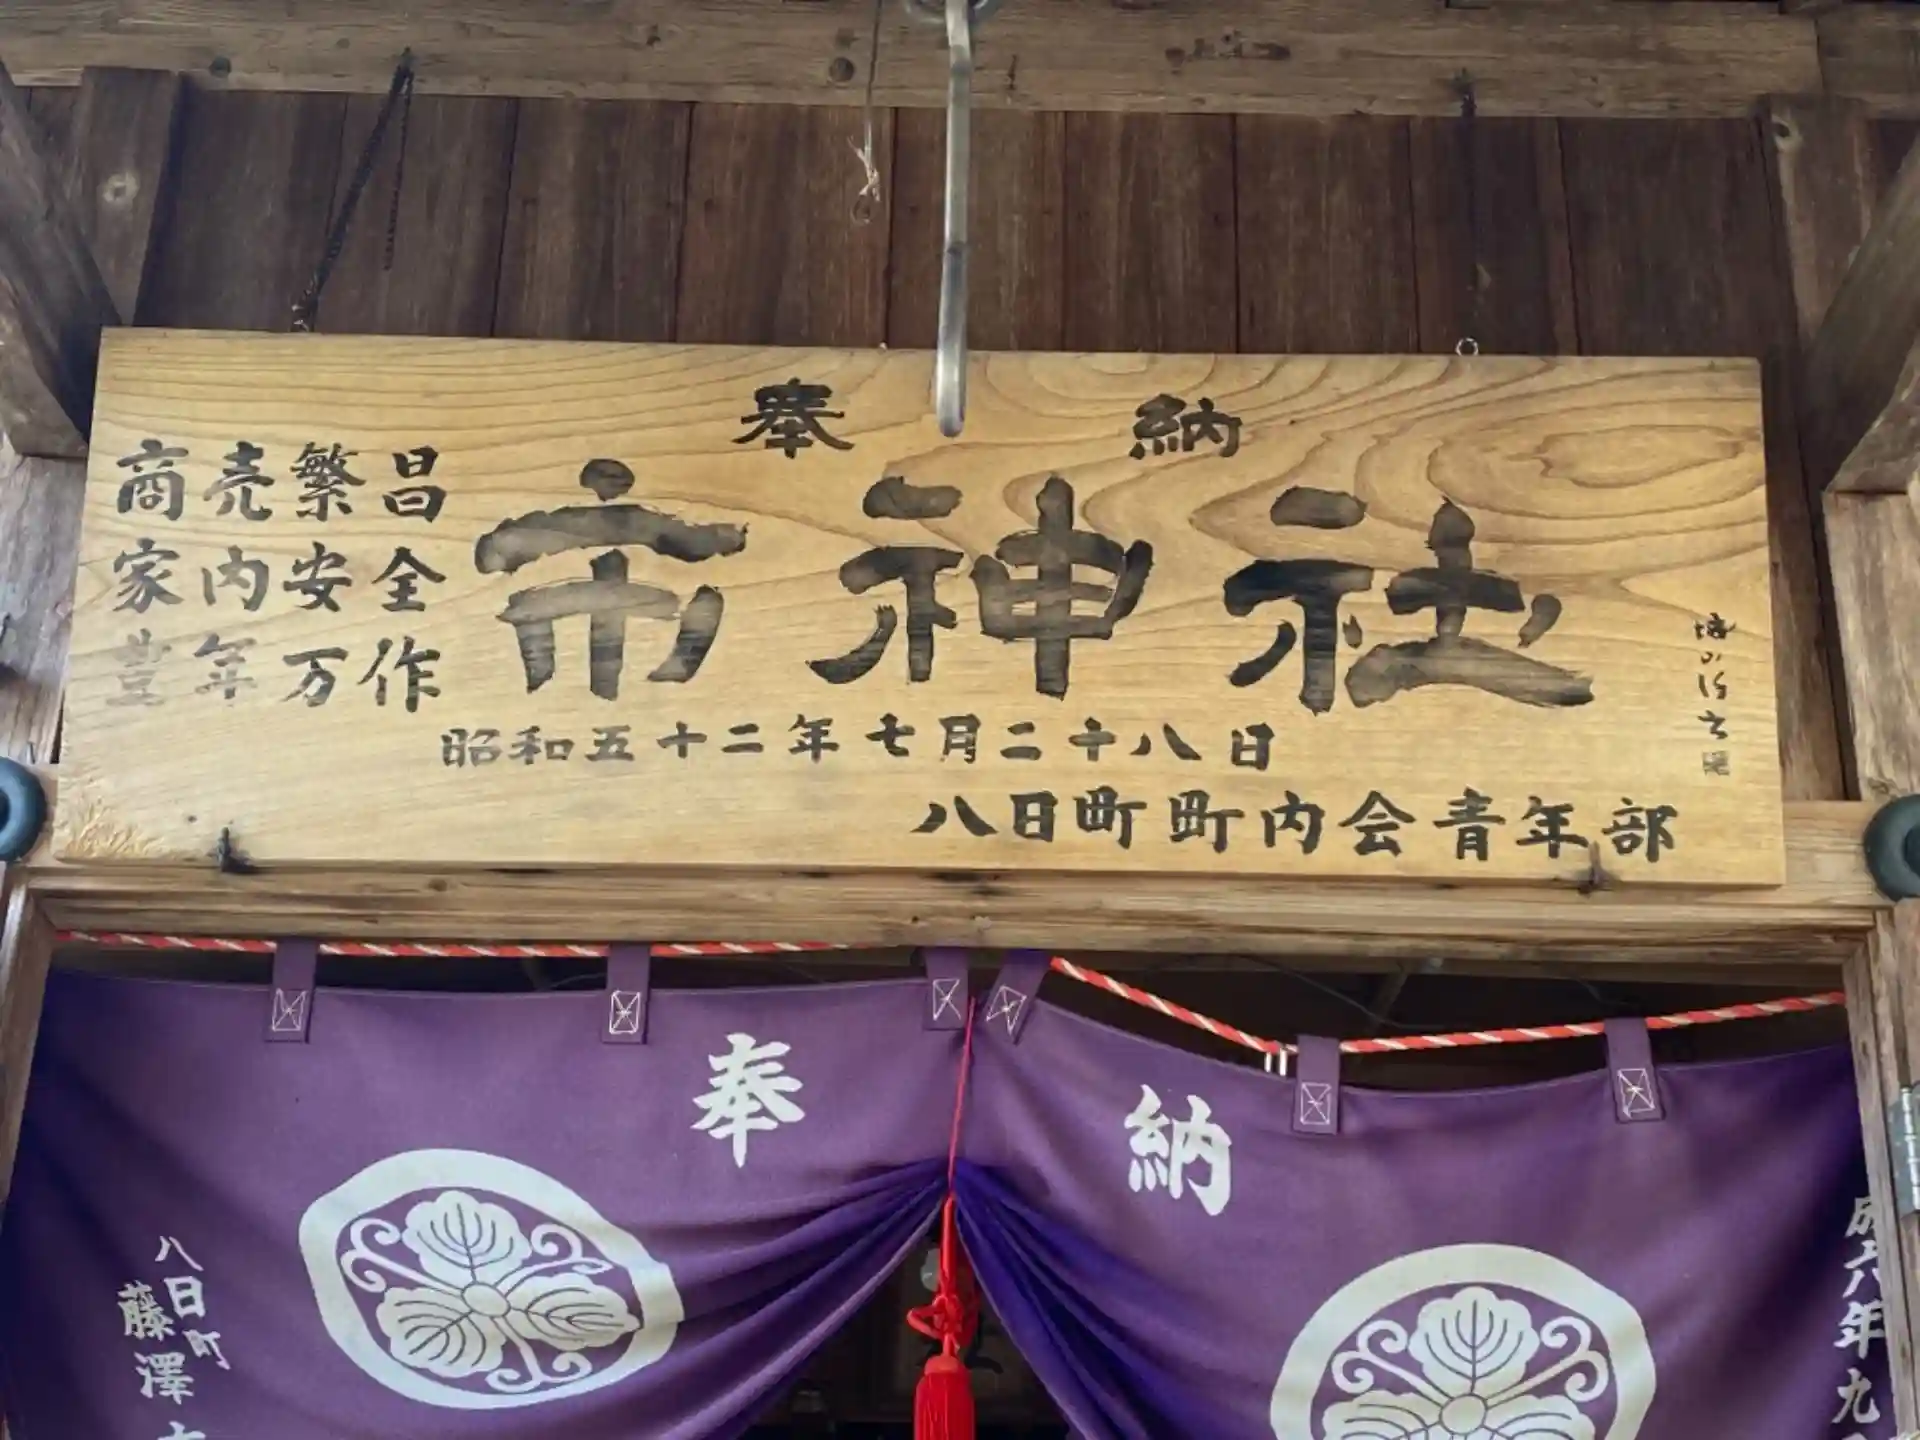 奉納
市神社
商売繁昌
家内安全
豊年万作
昭和五十二年七月二十八日
八日町町内会青年部
奉納
八日町
藤澤
成六年九